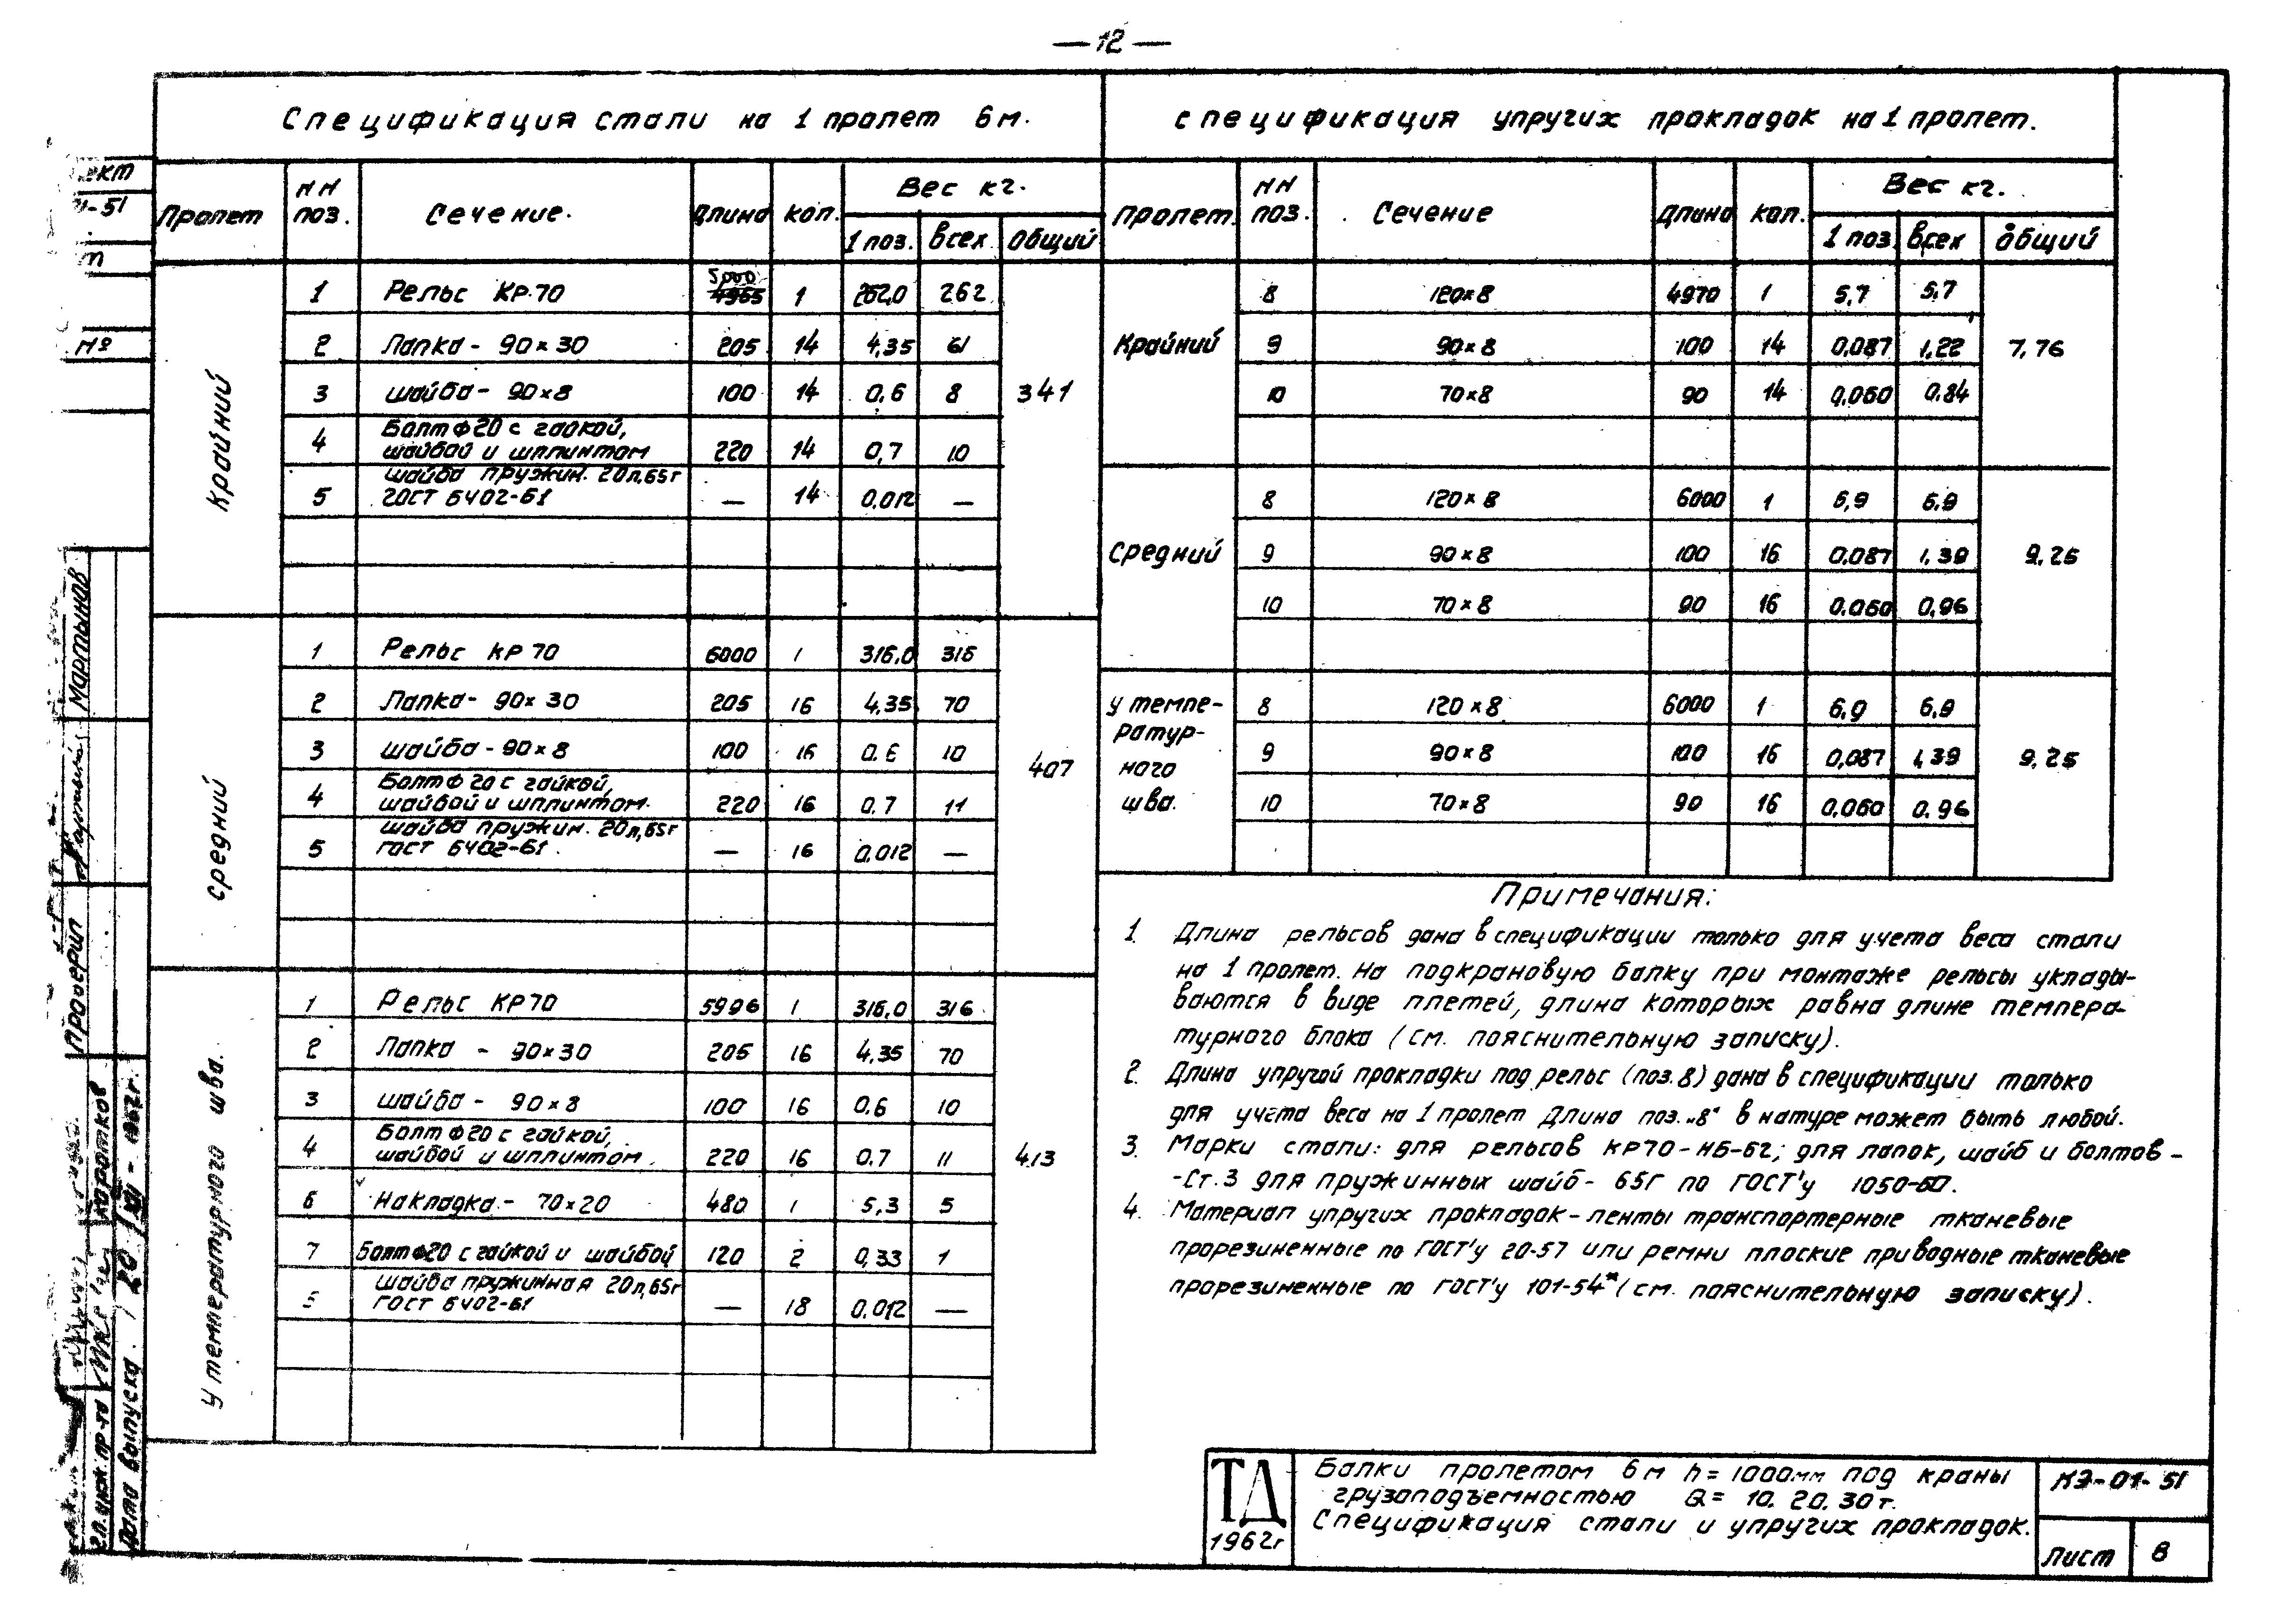 — 12 —
Спецификация стали на 1 пролет 6м.
Пролет | NN поз. | Сечение. | Длина | кол. | Вес кг. 1 поз. | всех | Общий
Крайний
1 | Рельс КР-70 | 5000 4965 | 1 | 262,0 | 262
2 | Лапка - 90×30 | 205 | 14 | 4,35 | 61
3 | шайба - 90×8 | 100 | 14 | 0,6 | 8 | 341
4 | Болт Ф20 с гайкой,
шайбой и шплинтом | 220 | 14 | 0,7 | 10
5 | шайба пружин. 20л,65г
ГОСТ 6402-61 | — | 14 | 0,012 | —
средний
1 | Рельс КР 70 | 6000 | 1 | 316,0 | 316
2 | Лапка - 90×30 | 205 | 16 | 4,35 | 70
3 | шайба - 90×8 | 100 | 16 | 0.6 | 10 | 407
4 | Болт Ф20 с гайкой,
шайбой и шплинтом. | 220 | 16 | 0.7 | 11
5 | шайба пружин. 20л,65г
ГОСТ 6402-61. | — | 16 | 0,012 | —
У температурного шва.
1 | Рельс КР70 | 5996 | 1 | 316,0 | 316
2 | Лапка - 90×30 | 205 | 16 | 4,35 | 70
3 | шайба - 90×8 | 100 | 16 | 0.6 | 10
4 | Болт Ф20 с гайкой,
шайбой и шплинтом. | 220 | 16 | 0.7 | 11 | 413
6 | Накладка - 70×20 | 480 | 1 | 5,3 | 5
7 | Болт Ф20 с гайкой и шайбой | 120 | 2 | 0,33 | 1
5 | шайба пружинная 20л,65г
ГОСТ 6402-61 | — | 18 | 0.012 | —
спецификация упругих прокладок на 1 пролет.
Пролет. | NN поз. | Сечение | Длина | кол. | Вес кг. 1 поз. | всех | общий
Крайний
8 | 120×8 | 4970 | 1 | 5,7 | 5,7
9 | 90×8 | 100 | 14 | 0,087 | 1,22 | 7,76
10 | 70×8 | 90 | 14 | 0,060 | 0,84
Средний
8 | 120×8 | 6000 | 1 | 6,9 | 6.9
9 | 90×8 | 100 | 16 | 0,087 | 1,39 | 9,25
10 | 70×8 | 90 | 16 | 0.060 | 0,96
У темпе-
ратур-
ного
шва.
8 | 120×8 | 6000 | 1 | 6,9 | 6,9
9 | 90×8 | 100 | 16 | 0,087 | 1,39 | 9,25
10 | 70×8 | 90 | 16 | 0,060 | 0.96
Примечания:
1. Длина рельсов дана в спецификации только для учета веса стали
на 1 пролет. На подкрановую балку при монтаже рельсы уклады-
ваются в виде плетей, длина которых равна длине темпера-
турного блока (см. пояснительную записку).
2. Длина упругой прокладки под рельс (поз.8) дана в спецификации только
для учета веса на 1 пролет Длина поз.„8" в натуре может быть любой.
3. Марки стали: для рельсов КР70-НБ-62; для лапок, шайб и болтов -
-Ст.3 для пружинных шайб - 65г по ГОСТ'у 1050-60.
4. Материал упругих прокладок - ленты транспортерные тканевые
прорезиненные по ГОСТ'у 20-57 или ремни плоские приводные тканевые
прорезиненные по ГОСТ'у 101-54* (см. пояснительную записку).
ТД
1962г
Балки пролетом 6м h=1000мм под краны
грузоподъемностью Q= 10. 20. 30т.
Спецификация стали и упругих прокладок.
КЭ-01-51
Лист 8
№
Мартынов
Проверил
Коротков
Гл. инж. пр-та
Дата выпуска 20/XII - 1962г.